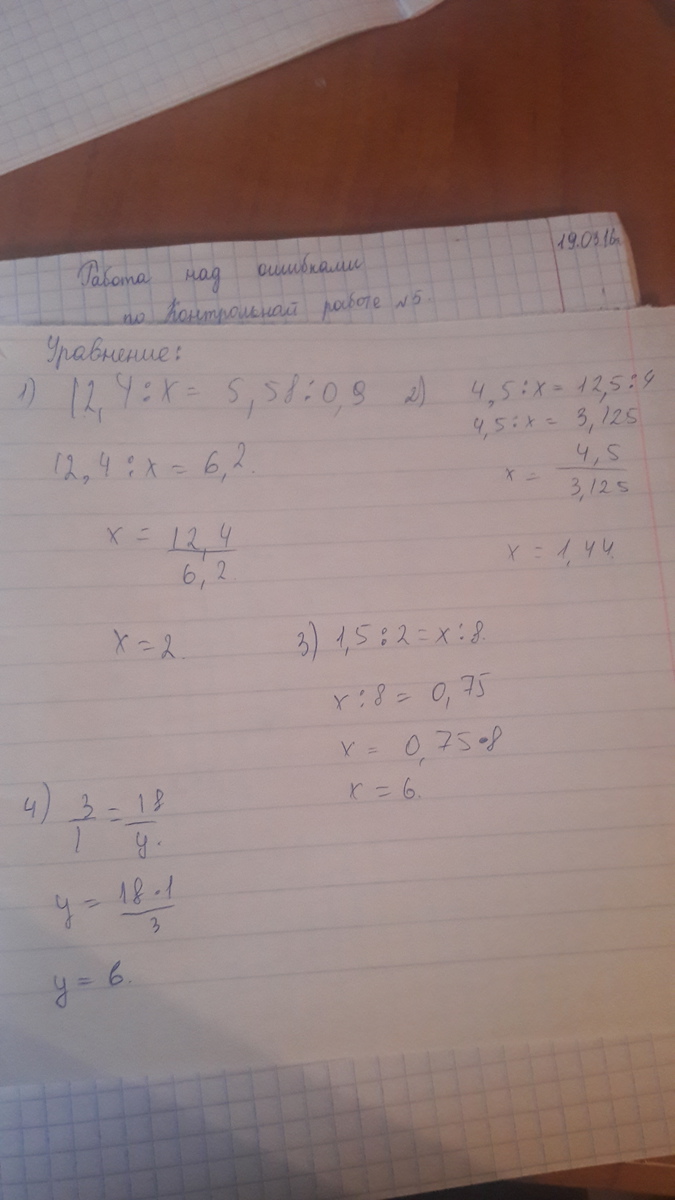 19.03.16г
Работа над ошибками
по Контрольной работе №5.
Уравнение:
1) 12,4:x = 5,58:0,9
12,4:x = 6,2.
x = 12,4/6,2.
x = 2.
2) 4,5:x = 12,5:4
4,5:x = 3,125
x = 4,5/3,125
x = 1,44.
3) 1,5:2 = x:8.
x:8 = 0,75
x = 0,75•8
x = 6.
4) 3/1 = 18/y.
y = 18•1/3
y = 6.